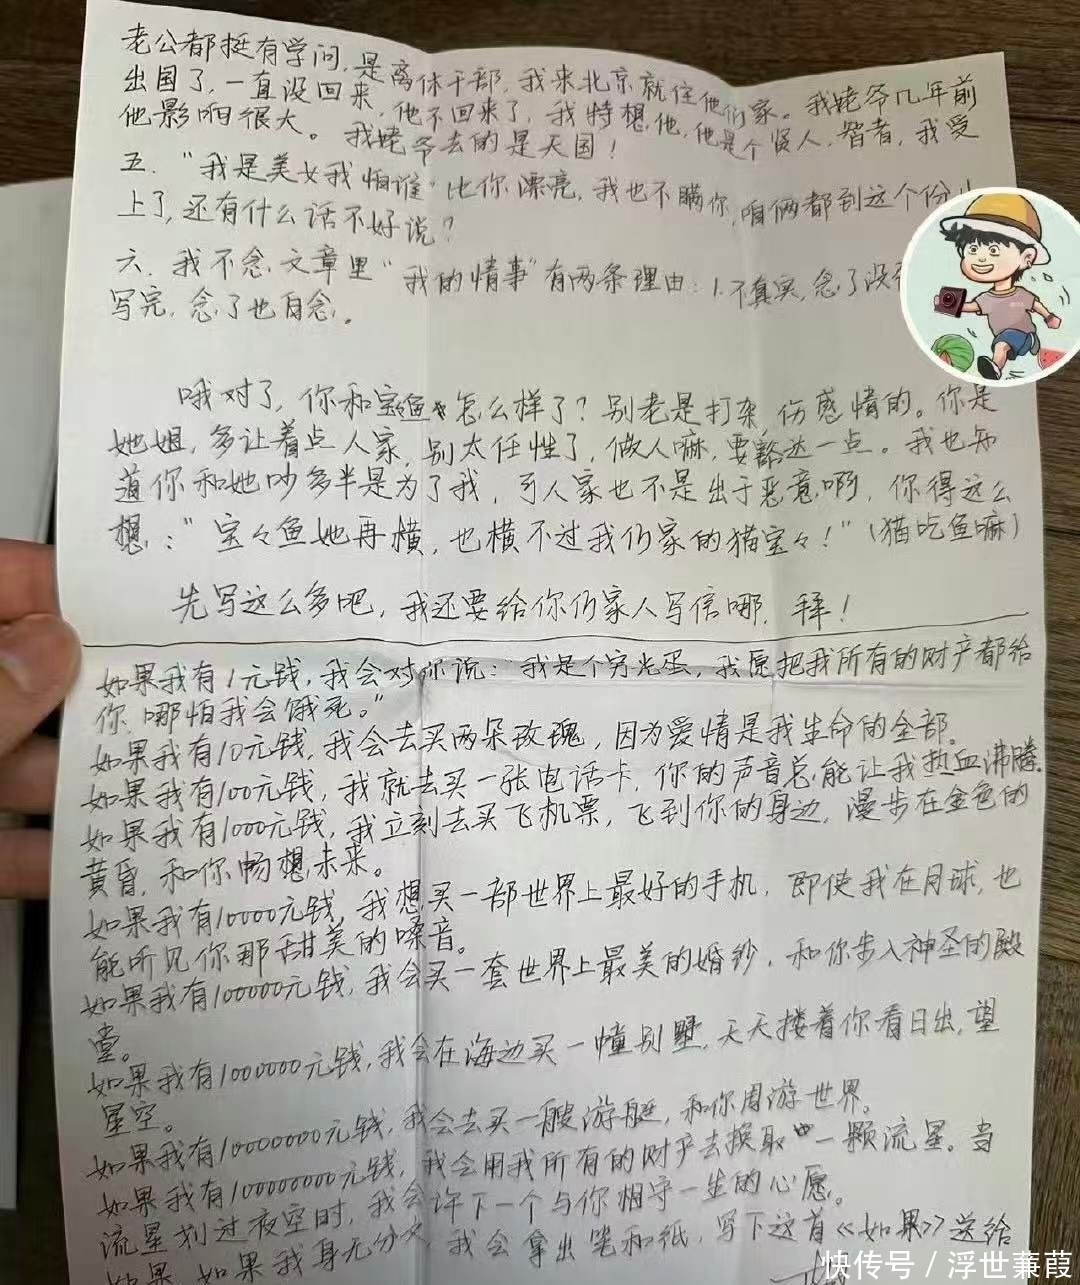 老公都挺有学问,是离休干部,我来北京就住他们家。我姥爷几年前
出国了,一直没回来,他不回来了,我特想他,他是个贤人,智者,我受
他影响很大。我姥爷去的是天国!
五."我是美女我怕谁"比你漂亮,我也不瞒你,咱俩都到这个份儿
上了,还有什么话不好说?
六.我不念文章里"我的情事"有两条理由:1.不真实,念了没
写完,念了也白念。
哦对了,你和宝鱼怎么样了?别老是打杂,伤感情的。你是
她姐,多让着点人家,别太任性了,做人嘛,要豁达一点。我也知
道你和她吵多半是为了我,可人家也不是出于恶意啊,你得这么
想:"宝々鱼她再横,也横不过我们家的猫宝々!"(猫吃鱼嘛)
先写这么多吧,我还要给你们家人写信哪,拜!
如果我有1元钱,我会对你说:"我是个穷光蛋,我愿把我所有的财产都给
你,哪怕我会饿死。"
如果我有10元钱,我会去买两朵玫瑰,因为爱情是我生命的全部。
如果我有100元钱,我就去买一张电话卡,你的声音总能让我热血沸腾。
如果我有1000元钱,我立刻去买飞机票,飞到你的身边,漫步在金色的
黄昏,和你畅想未来。
如果我有10000元钱,我想买一部世界上最好的手机,即使我在月球,也
能听见你那甜美的嗓音。
如果我有100000元钱,我会买一套世界上最美的婚纱,和你步入神圣的殿
堂。
如果我有1000000元钱,我会在海边买一幢别墅,天天搂着你看日出,望
星空。
如果我有10000000元钱,我会去买一艘游艇,和你周游世界。
如果我有100000000元钱,我会用我所有的财产去换取一颗流星。当
流星划过夜空时,我会许下一个与你相守一生的心愿。
如果,如果我身无分文,我会拿出笔和纸,写下这首《如果》送给
快传号/浮世蒹葭